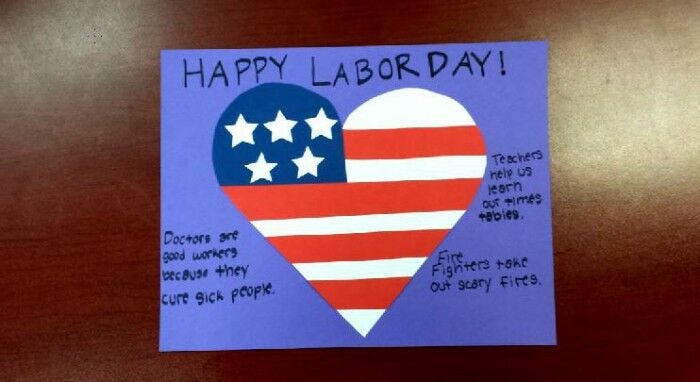 HAPPY LABOR DAY!
Teachers
help us
learn
our times
tables.
Doctors are
good workers
because they
cure sick people.
Fire
Fighters take
out scary fires.